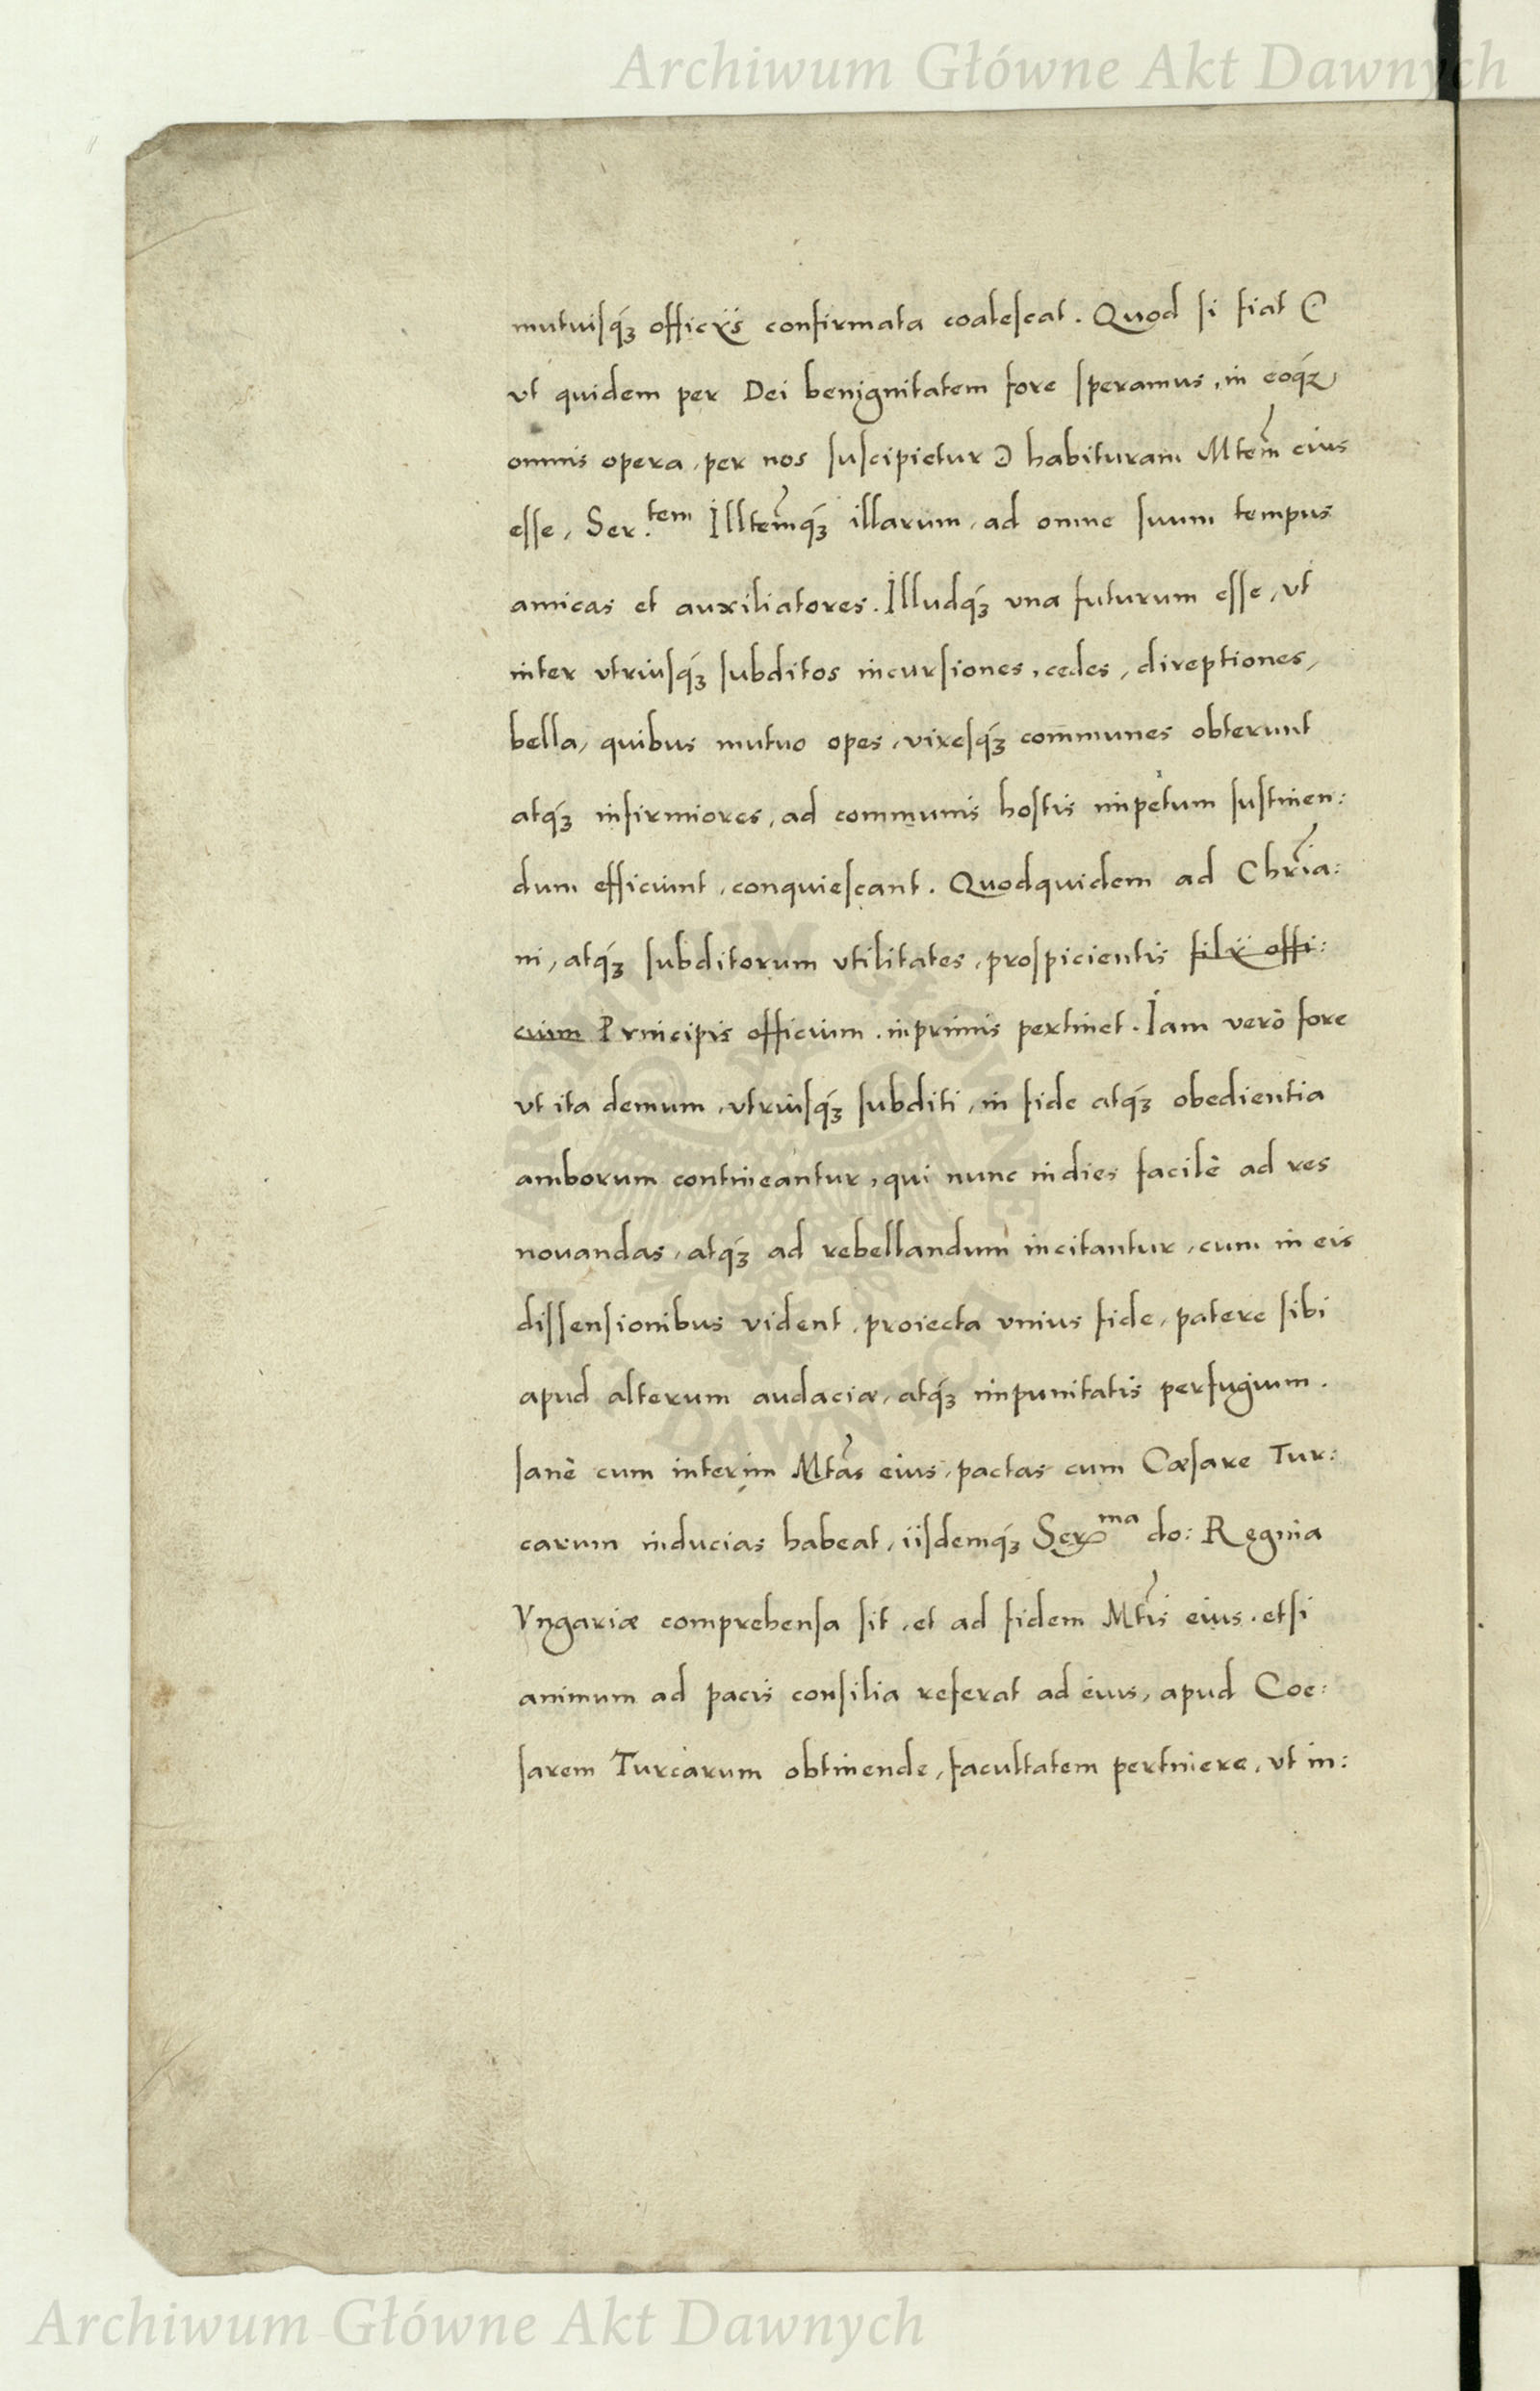 Archiwum Główne Akt Dawnych
mutuisq́ꝫ officÿs confirmata coalescat. Quod si fiat (
vt quidem per Dei benignitatem fore speramus, in eoq́ꝫ
omnis opera, per nos suscipietur) habituram Mtem̃ eius
esse, Ser.tem Illtem̃q́ꝫ illarum, ad omne suum tempus
amicas et auxiliatores. Illudq́ꝫ vna futurum esse, vt
inter vtriusq́ꝫ subditos incursiones, cedes, direptiones,
bella, quibus mutuo opes, viresq́ꝫ communes obterunt
atq́ꝫ infirmiores, ad communis hostis impetum sustinen:
dum efficiunt, conquiescant. Quodquidem ad Chr̃ia:
ni, atq́ꝫ subditorum vtilitates, prospicientis filÿ offi:
cium Principis officium, inprimis pertinet. Iam verò fore
vt ita demum, vtriusq́ꝫ subditi, in fide atq́ꝫ obedientia
amborum contineantur, qui nunc indies facilè ad res
nouandas, atq́ꝫ ad rebellandum incitantur, cum in eis
dissensionibus vident, proiecta vnius fide, patere sibi
apud alterum audaciæ, atq́ꝫ impunitatis perfugium.
sanè cum interim Mtas̃ eius, pactas cum Cæsare Tur:
carum inducias habeat, iisdemq́ꝫ Serma do: Regina
Vngariæ comprehensa sit, et ad fidem Mtis̃ eius, etsi
animum ad pacis consilia referat ad eius, apud Coe:
sarem Turcarum obtinende, facultatem pertinere, vt in:
ARCHIWUM GŁÓWNE AKT DAWNYCH
Archiwum Główne Akt Dawnych